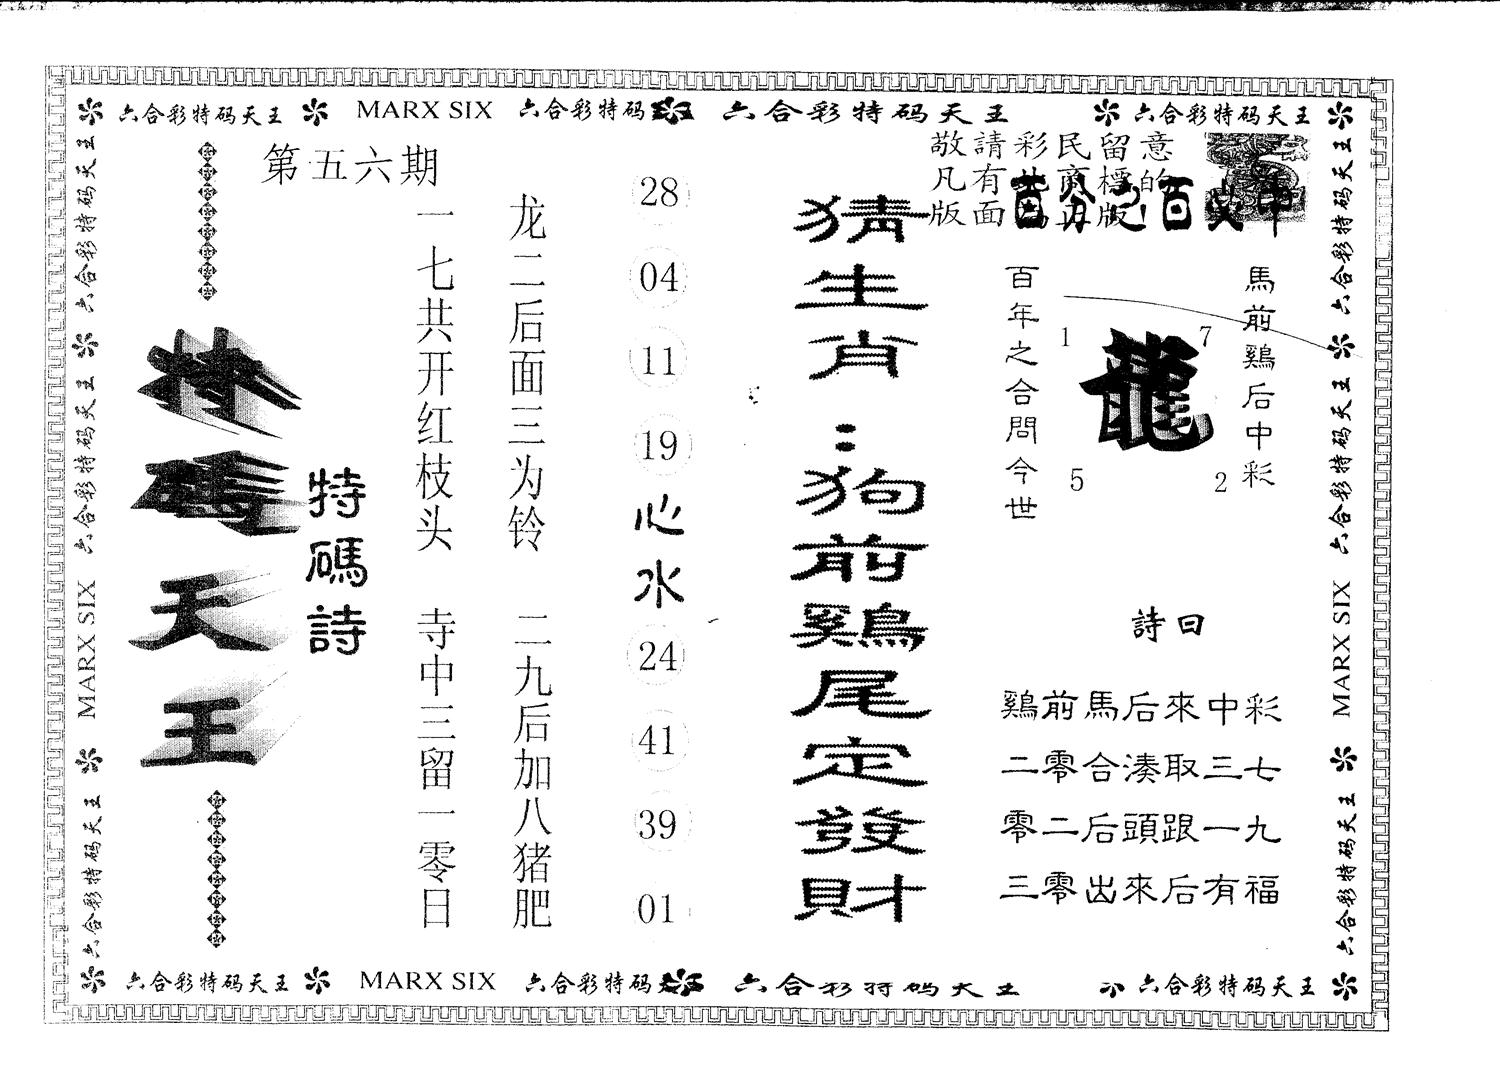 六合彩特码天王 MARX SIX 六合彩特码 六合彩特码天王 六合彩特码天王
第五六期
敬請彩民留意
凡有
商標的
版面
版!
百分之百
中
馬前鷄后中彩
百年之合問今世
龍
1
7
5
2
猜生肖:狗前鷄尾定發財
28
04
11
19
心水
24
41
39
01
龙二后面三为铃 二九后加八猪肥
一七共开红枝头 寺中三留一零日
特碼詩
特碼天王
詩曰
鷄前馬后來中彩
二零合湊取三七
零二后頭跟一九
三零出來后有福
六合彩特码天王 六合彩特码天王 MARX SIX 六合彩特码天王
六合彩特码天王 六合彩特码天王 MARX SIX 六合彩特码天王
六合彩特码天王 MARX SIX 六合彩特码 六合彩特码天王 六合彩特码天王